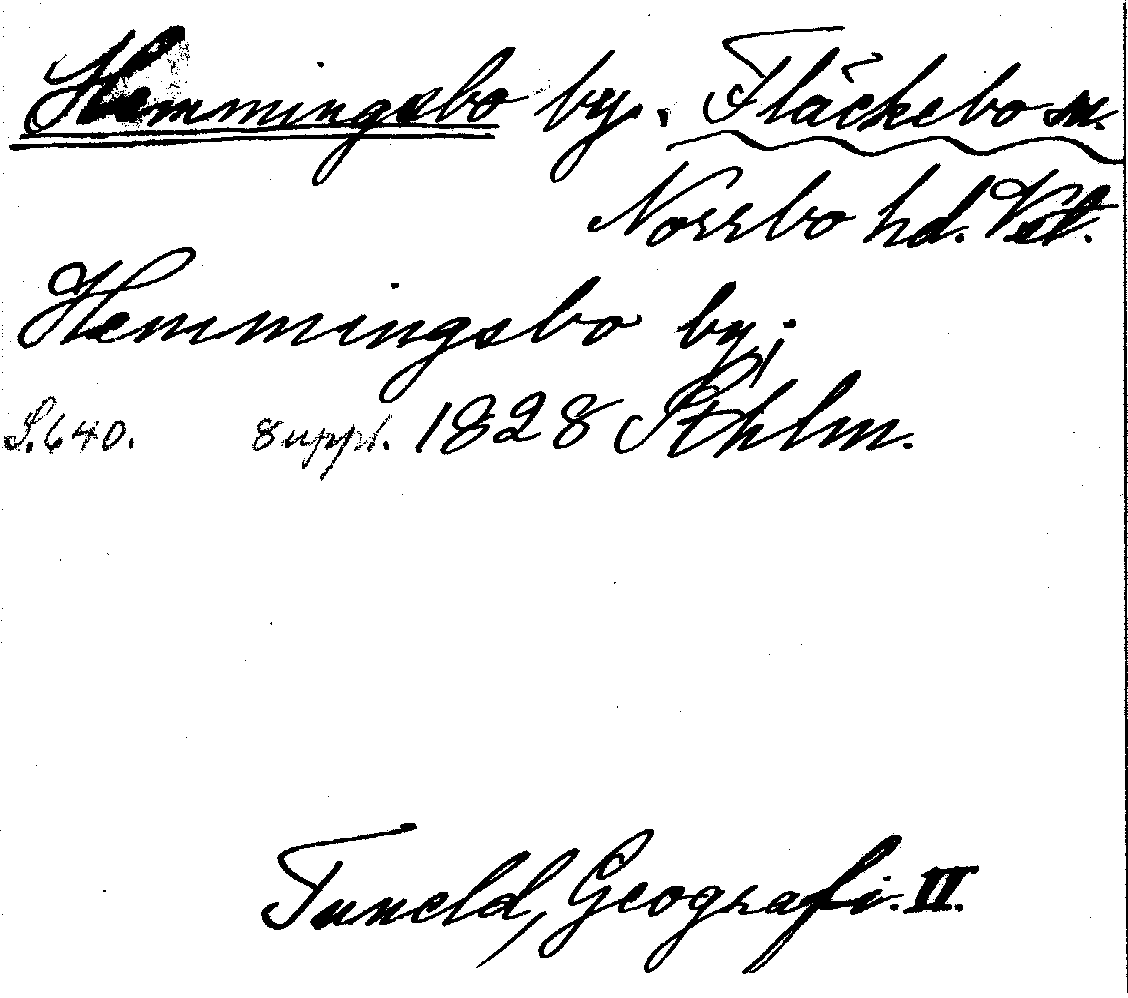 Hemmingsbo by. Fläckebo sn.
Norrbo hd. Vstl.
Hemmingsbo by;
S. 640. Suppl. 1828 Sthlm.
Tuneld, Geografi. II.